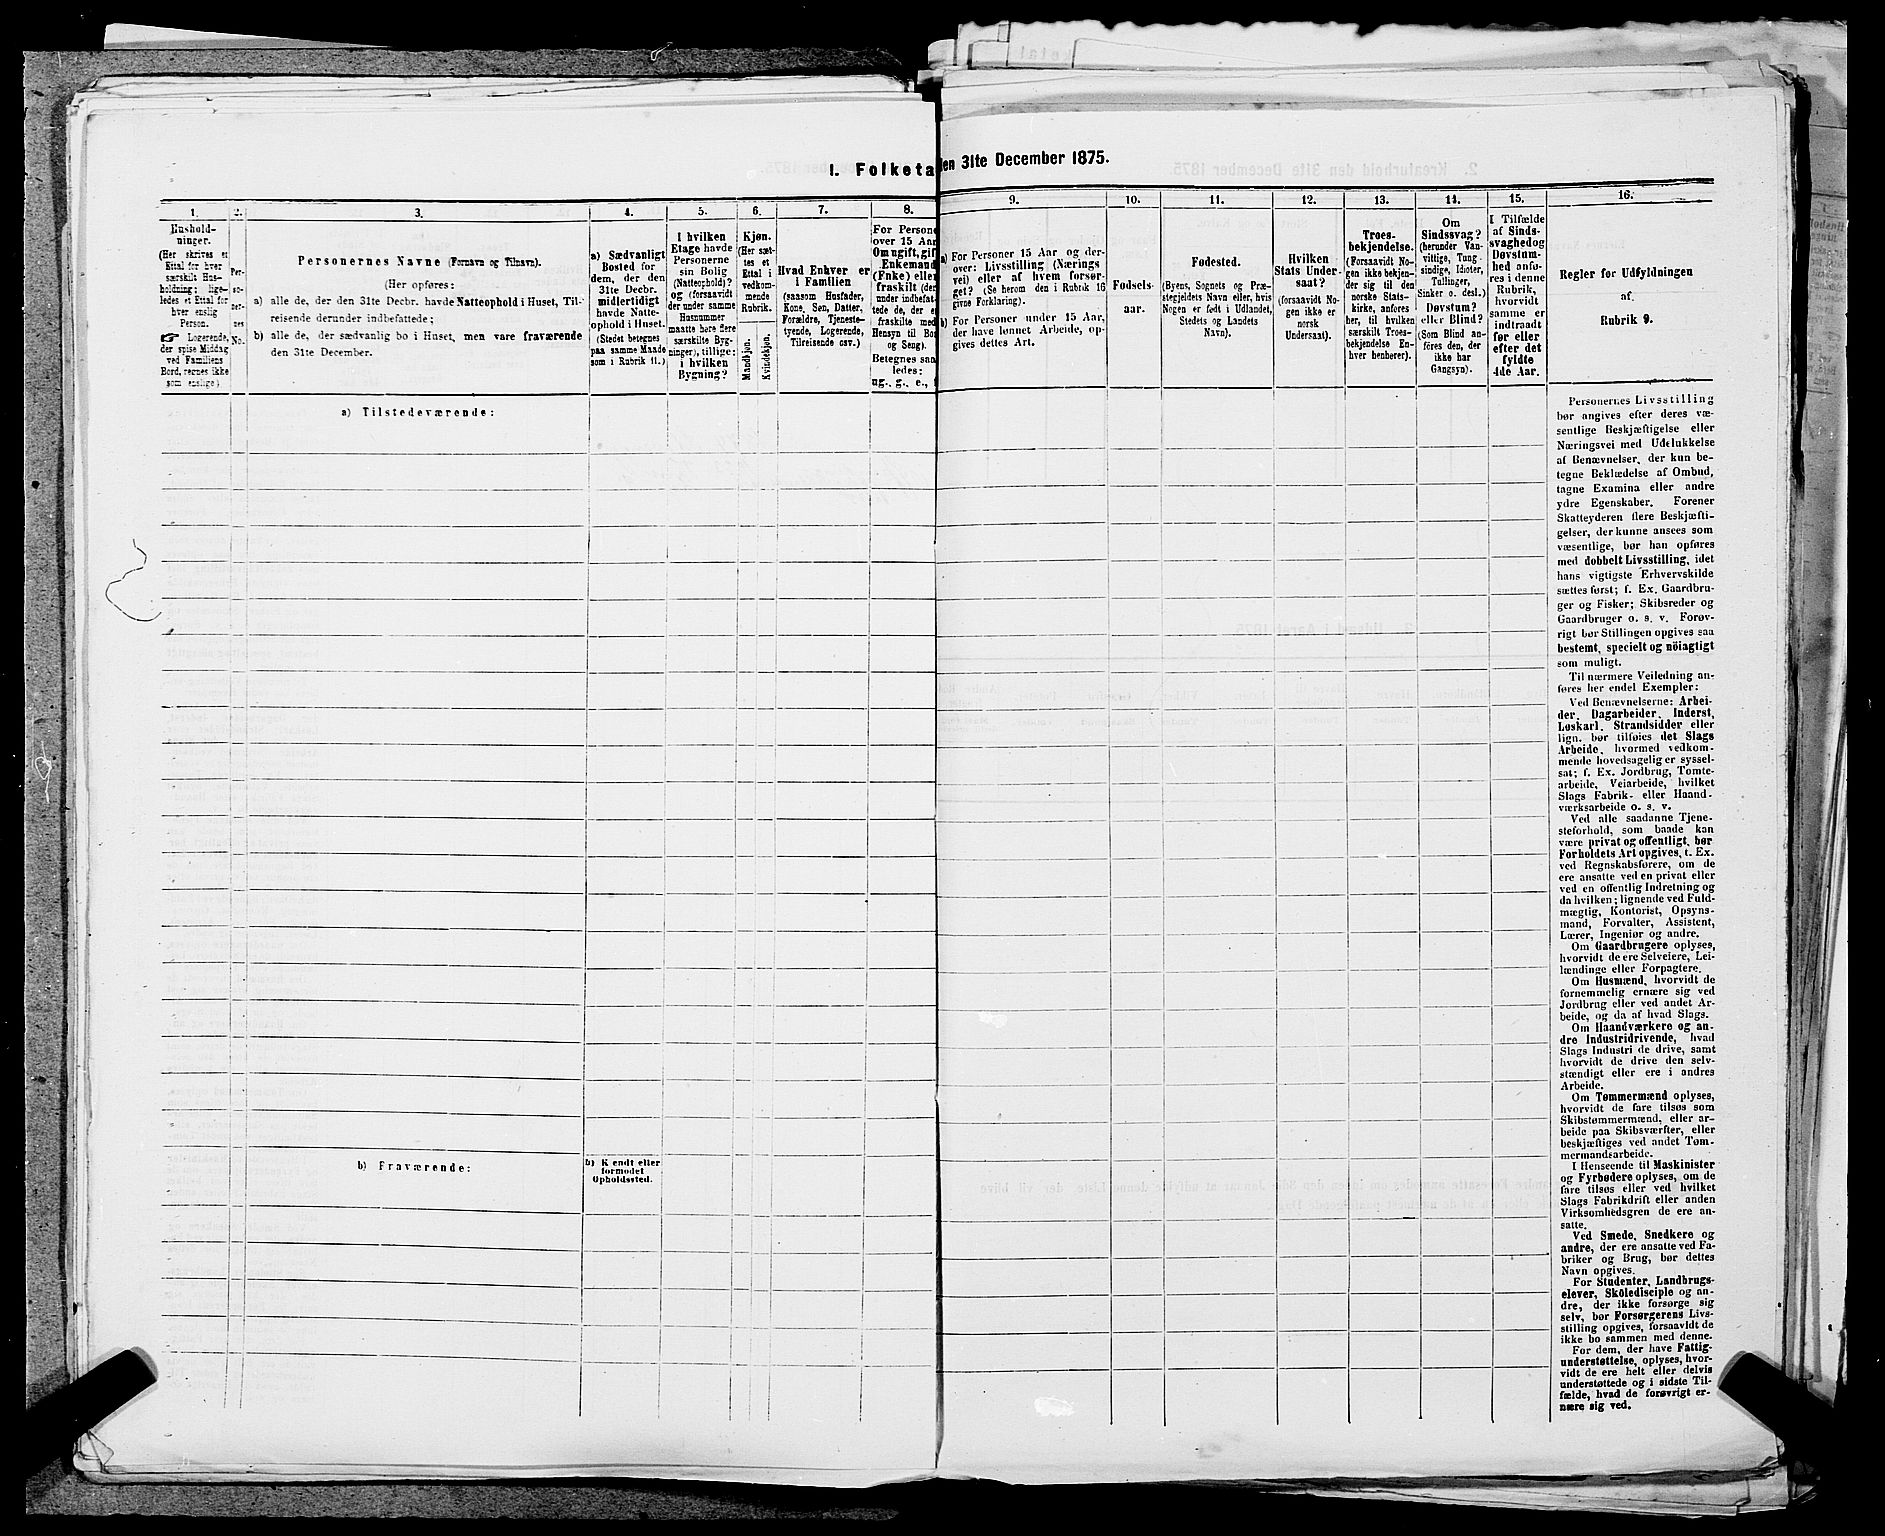 I. Folketa
den 31te December 1875.
1.
Hushold-
ninger.
(Her skrives et
Ettal for hver
særskilt Hus-
holdning; lige-
ledes et Ettal for
hver enslig
Person.
☞ Logerende,
der spise Middag
ved Familiens
Bord, regnes ikke
som enslige.)
2.
Per-
so-
ner-
nes
No.
3.
Personernes Navne (Fornavn og Tilnavn).
(Her opføres:
a) alle de, der den 31te Decbr. havde Natteophold i Huset, Til-
reisende derunder indbefattede;
b) alle de, der sædvanlig bo i Huset, men vare fraværende
den 31te December.
4.
a) Sædvanligt
Bosted for
dem, der den
31te Decbr.
midlertidigt
havde Natte-
ophold i Huset.
(Stedet betegnes
paa samme Maade
som i Rubrik 11.)
5.
I hvilken
Etage havde
Personerne
sin Bolig
(Natteophold)?
og (forsaavidt
der under samme
Husnummer
maatte høre flere
særskilte Byg-
ninger), tillige:
i hvilken
Bygning?
6.
Kjøn.
(Her sæt-
tes et
Ettal i
vedkom-
mende
Rubrik.
Mandkjøn.
Kvindekjøn.
7.
Hvad Enhver er
i Familien
(saasom Husfader,
Kone, Søn, Datter,
Forældre, Tjeneste-
tyende, Logerende,
Tilreisende osv.)
8.
For Persone
over 15 Aar
Om ugift, gif
Enkemand
(Enke) eller
fraskilt (der
under indbefat-
tede de, der e
fraskilte med
Hensyn til Bo
og Seng).
Betegnes saa
ledes:
ug., g., e., f
9.
a) For Personer 15 Aar og der-
over: Livsstilling (Nærings
vei) eller af hvem forsør-
get? (Se herom den i Rubrik 16
givne Forklaring).
b) For Personer under 15 Aar,
der have lønnet Arbeide, op-
gives dettes Art.
10.
Fødsels-
aar.
11.
Fødested.
(Byens, Sognets og Præ-
stegjeldets Navn eller, hvis
Nogen er født i Udlandet,
Stedets og Landets
Navn).
12.
Hvilken
Stats Under-
saat?
(forsaavidt No-
gen ikke er
norsk
Undersaat).
13.
Troes-
bekjendelse.
(Forsaavidt No-
gen ikke bekjen-
der sig til den
norske Stats-
kirke, anføres
her, til hvilken
særskilt Troes-
bekjendelse En-
hver henhører).
14.
Om
Sindssvag?
(herunder Van-
vittige, Tung-
sindige, Idioter,
Tullinger,
Sinker o. desl.)
Døvstum?
eller Blind?
(Som Blind an-
føres den, der
ikke har
Gangsyn).
15.
I Tilfælde
af Sinds-
svaghed og
Døvstum-
hed anfø-
res i denne
Rubrik,
hvorvidt
samme er
indtraadt
før eller
efter det
fyldte
4de Aar.
16.
Regler for Udfyldningen
af.
Rubrik 9.
a) Tilstedeværende:
b) Fraværende:
b) Kjendt eller
formodet
Opholdssted.
Personernes Livsstilling
bør angives efter deres væ-
sentlige Beskjæftigelse eller
Næringsvei med Udelukkelse
af Benævnelser, der kun be-
tegne Beklædelse af Ombud,
tagne Examina eller andre
ydre Egenskaber. Forener
Skatteyderen flere Beskjæfti-
gelser, der kunne ansees som
væsentlige, bør han opføres
med dobbelt Livsstilling, idet
hans vigtigste Erhvervskilde
sættes først; f. Ex. Gaardbru-
ger og Fisker; Skibsreder og
Gaardbruger o. s. v. Forøv-
rigt bør Stillingen opgives saa
bestemt, specielt og nöiagtigt
som muligt.
Til nærmere Veiledning an-
føres her endel Exempler:
Ved Benævnelserne: Arbei-
der, Dagarbeider, Inderst,
Løskarl, Strandsidder eller
lign. bør tilføies det Slags
Arbeide, hvormed vedkom-
mende hovedsagelig er syssel-
sat; f. Ex. Jordbrug, Tomte-
arbeide, Veiarbeide, hvilket
Slags Fabrik- eller Haand-
værksarbeide o. s. v.
Ved alle saadanne Tjene-
steforhold, som baade kan
være privat og offentligt, bør
Forholdets Art opgives, t. Ex.
ved Regnskabsførere, om de
ere ansatte ved en privat eller
ved en offentlig Indretning og
da hvilken; lignende ved Fuld-
mægtig, Kontorist, Opsyns-
mand, Forvalter, Assistent,
Lærer, Ingeniør og andre.
Om Gaardbrugere oplyses,
hvorvidt de ere Selveiere, Lei-
lændinge eller Forpagtere.
Om Husmænd, hvorvidt de
fornemmelig ernære sig ved
Jordbrug eller ved andet Ar-
beide, og da af hvad Slags.
Om Haandværkere og an-
dre Industridrivende, hvad
Slags Industri de drive, samt
hvorvidt de drive den selv-
stændigt eller ere i andres
Arbeide.
Om Tømmermænd oplyses,
hvorvidt de fare tilsøs som
Skibstømmermænd, eller ar-
beide paa Skibsværfter, eller
beskjæftiges ved andet Tøm-
mermandsarbeide.
I Henseende til Maskinister
og Fyrbødere oplyses, om de
fare tilsøs eller ved hvilket
Slags Fabrikdrift eller anden
Virksomhedsgren de ere an-
satte.
Ved Smede, Snedkere og
andre, der ere ansatte ved Fa-
briker og Brug, bør dettes
Navn opgives.
For Studenter, Landbrugs-
elever, Skoledisciple og an-
dre, der ikke forsørge sig
selv, bør Forsørgerens Livs-
stilling opgives, forsaavidt de
ikke bo sammen med denne.
For dem, der have Fattig-
understøttelse, oplyses, hvor-
vidt de ere helt eller delvis
understøttede og i sidste Til-
fælde, hvad de forøvrigt er-
nære sig ved.